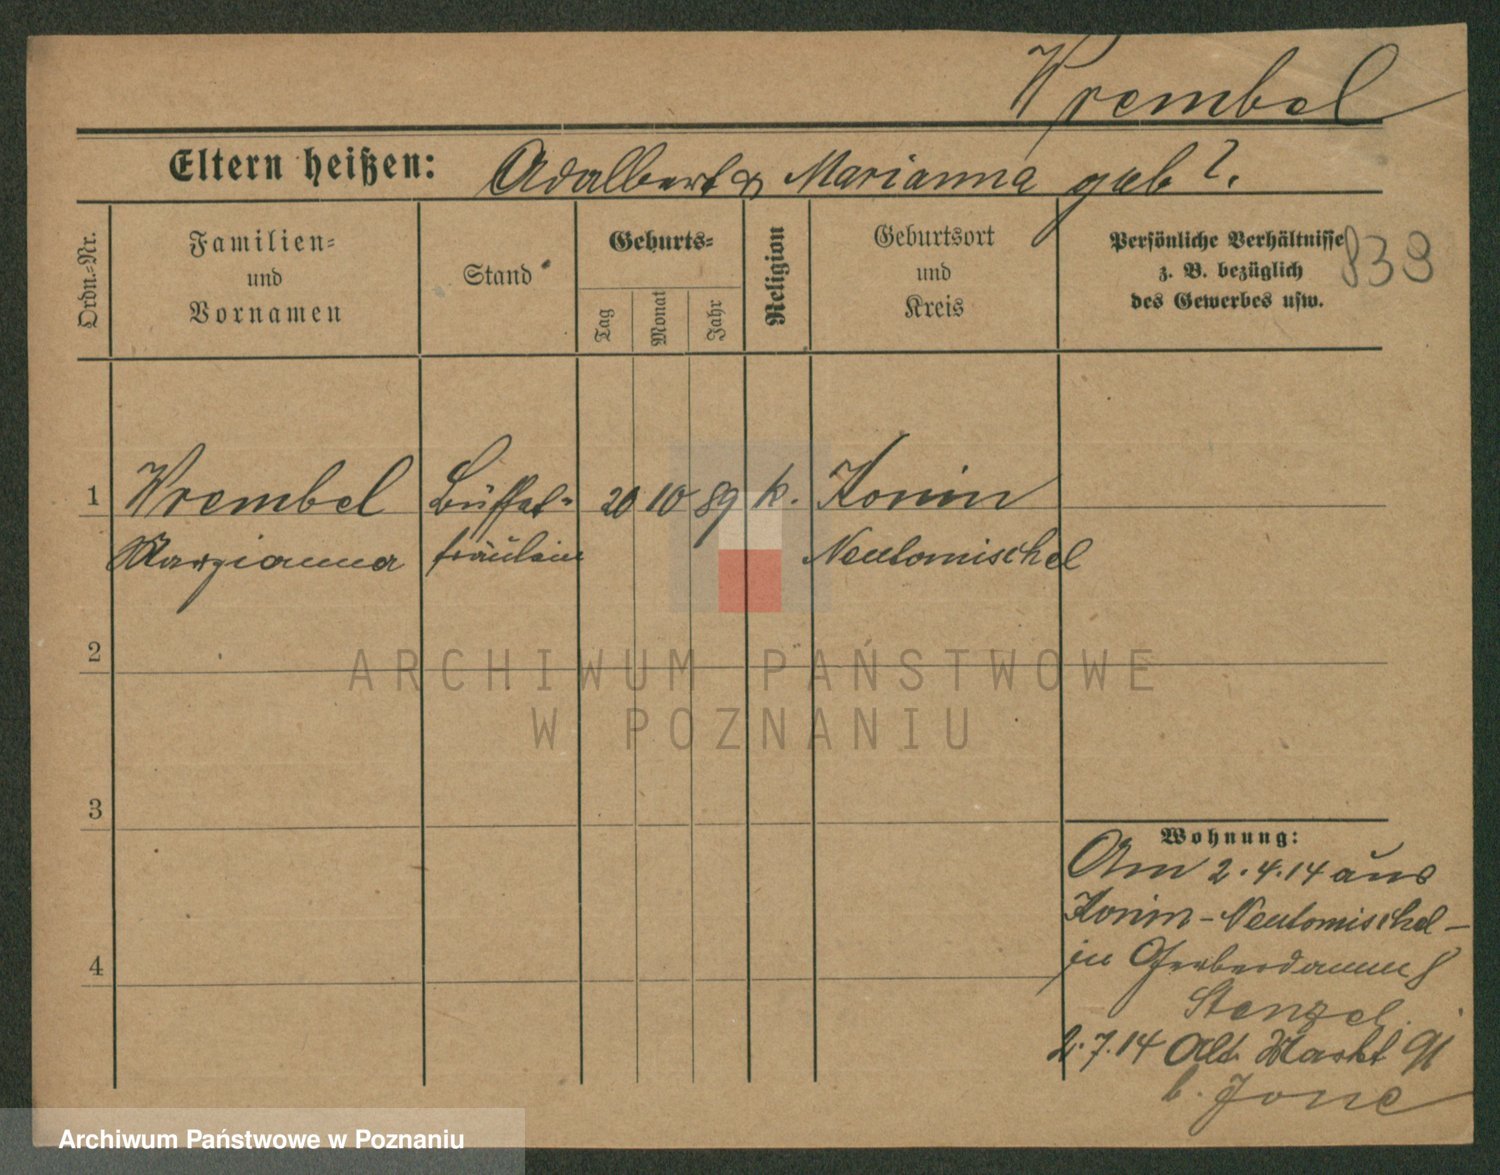 Wrembel
Eltern heißen: Adalbert & Marianna geb ?.
Ordn.-Nr.
Familien-
und
Vornamen
Stand
Geburts-
Tag
Monat
Jahr
Religion
Geburtsort
und
Kreis
Persönliche Verhältnisse
z. B. bezüglich
des Gewerbes usw.
838
1 Wrembel Büffet- 20 10 89 k. Konin
Marzianna fräulein Neutomischel
2
ARCHIWUM PAŃSTWOWE
W POZNANIU
3
Wohnung:
Am 2.4.14 aus
Konin-Neutomischel-
4
in Gerberdamm 8
Stenzel.
2.7.14 Alt. Markt 91
b.
Archiwum Państwowe w Poznaniu